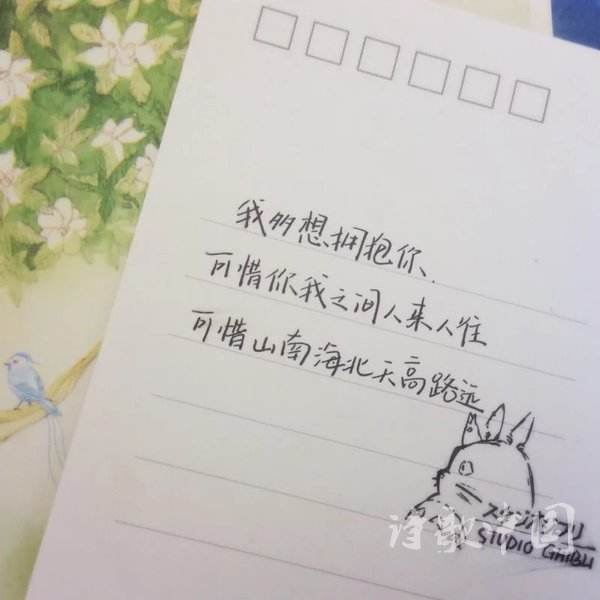 我多想拥抱你、
可惜你我之间人来人往
可惜山南海北天高路远
スタジオジブリ
STUDIO GHIBLI
诗歌中国